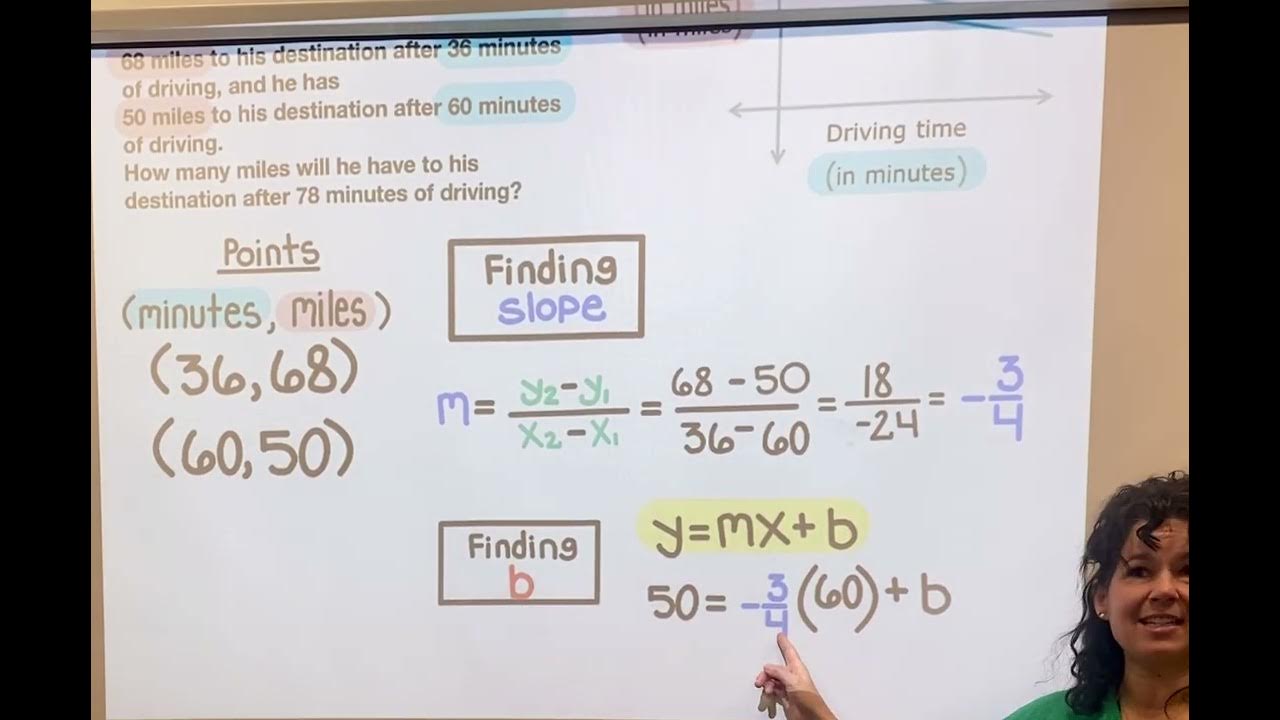 (in miles)
68 miles to his destination after 36 minutes
of driving, and he has
50 miles to his destination after 60 minutes
of driving.
How many miles will he have to his
destination after 78 minutes of driving?
Driving time
(in minutes)
Points
(minutes, miles)
(36, 68)
(60, 50)
Finding
slope
m = y₂-y₁/x₂-x₁ = 68-50/36-60 = 18/-24 = -3/4
Finding
b
y=mx+b
50 = -3/4(60)+b